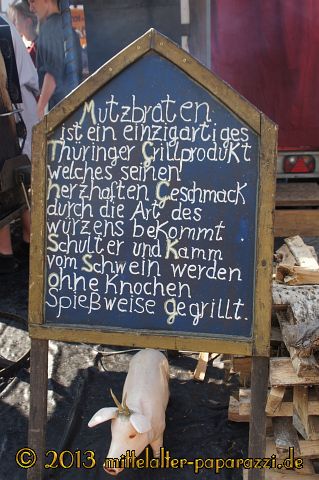 Mutzbraten
ist ein einzigartiges
Thüringer Grillprodukt
welches seinen
herzhaften Geschmack
durch die Art des
würzens bekommt
Schulter und Kamm
vom Schwein werden
ohne Knochen
Spießweise gegrillt.
© 2013 mittelalter-paparazzi.de